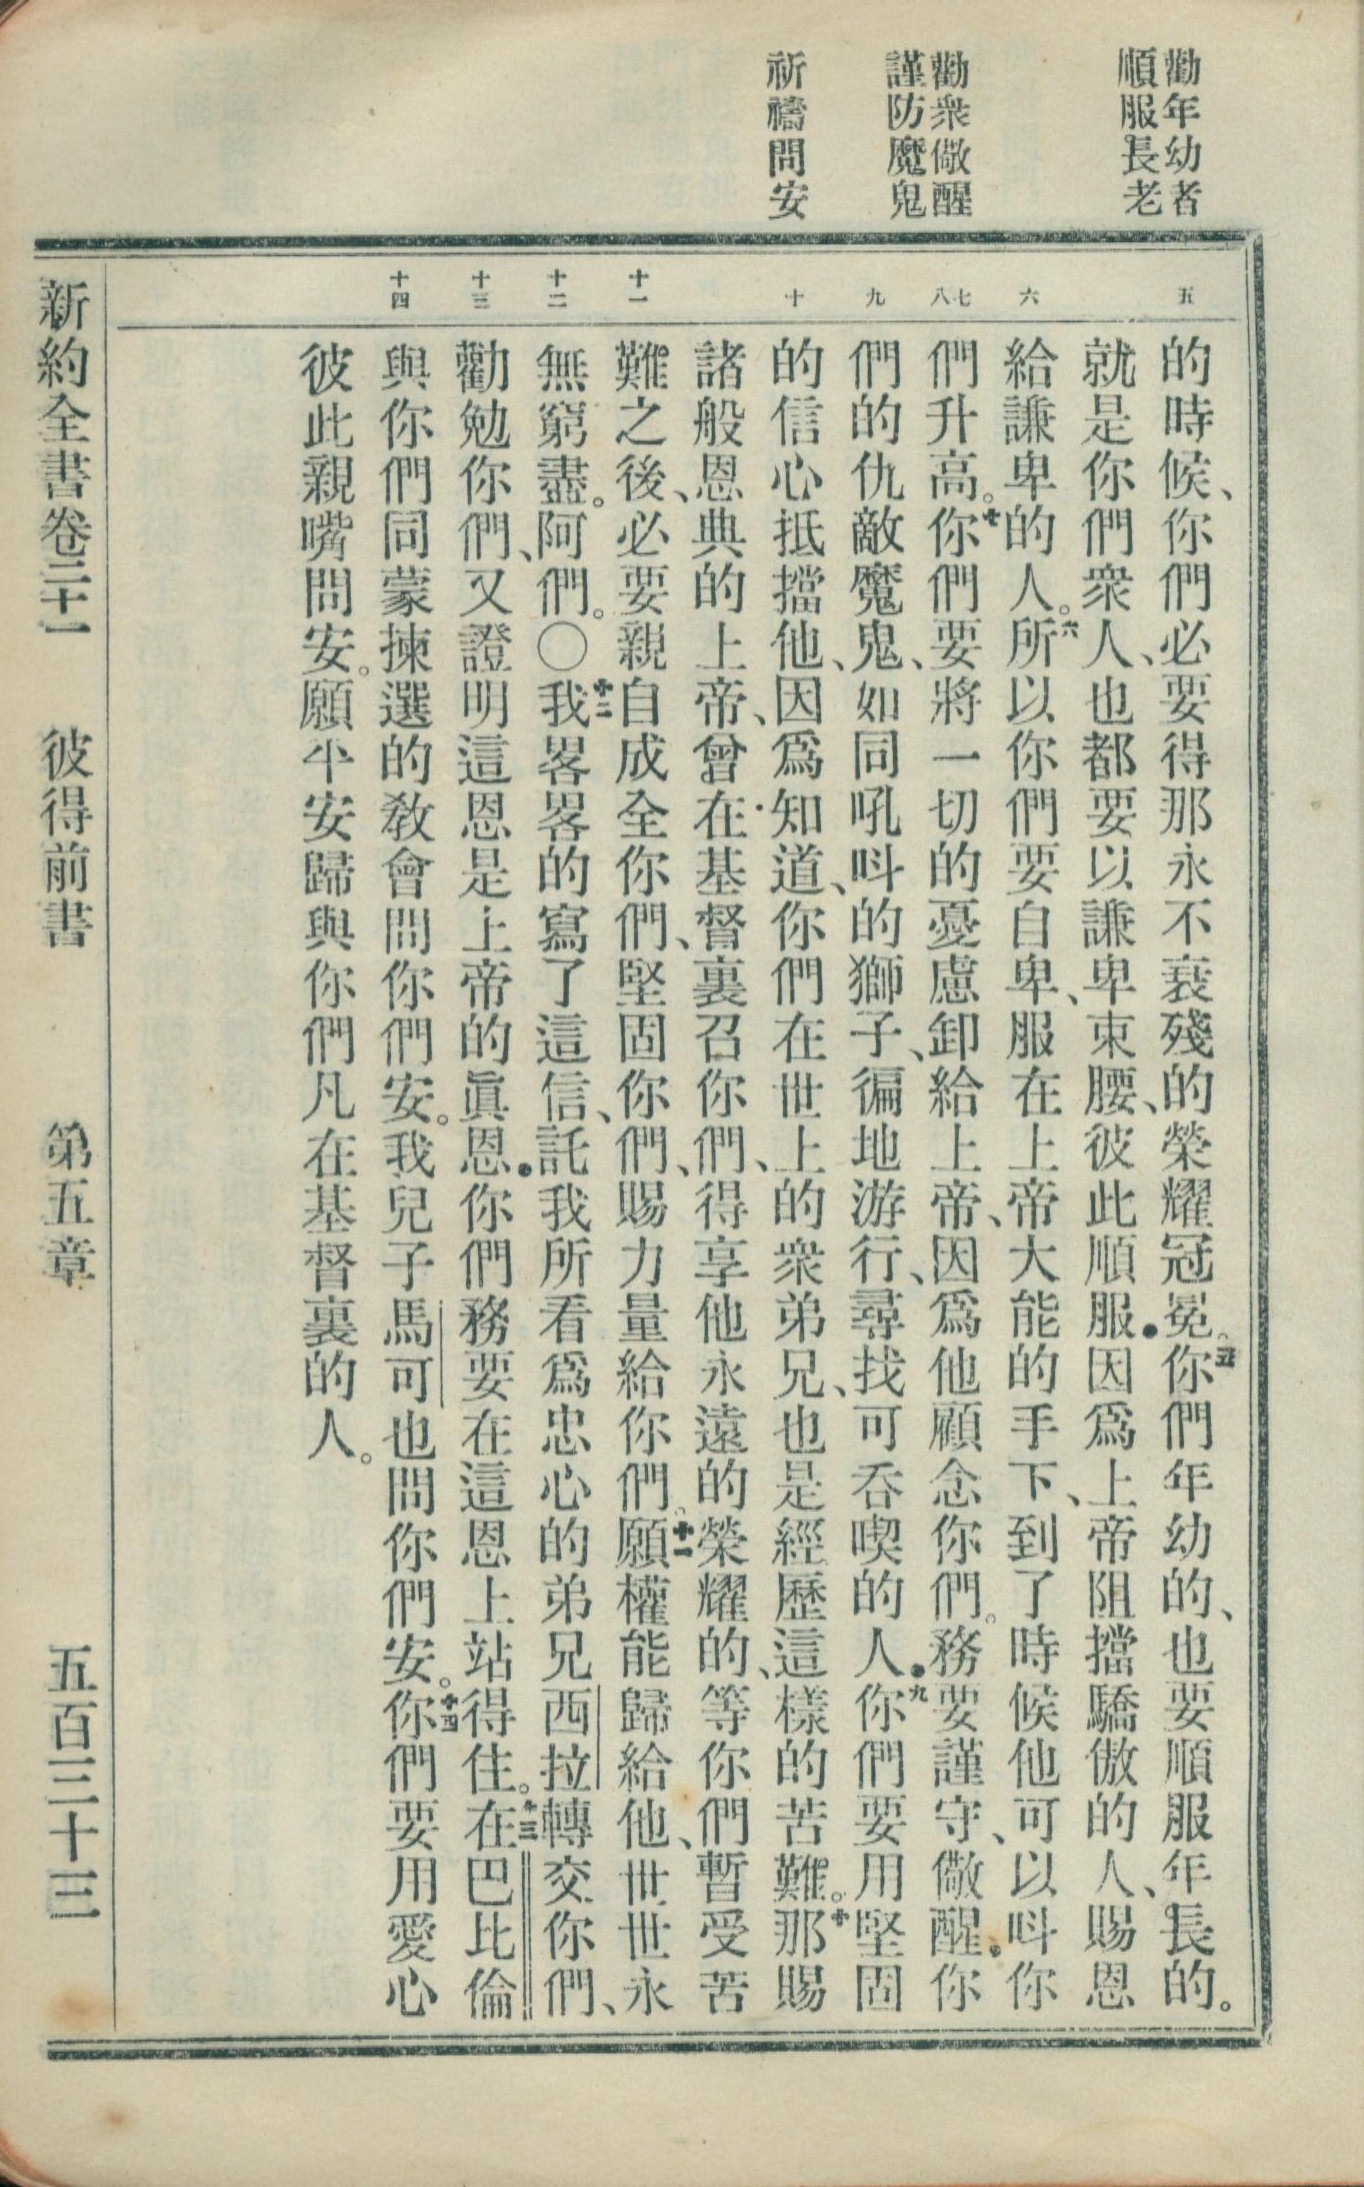 勸年幼者
順服長老
勸衆儆醒
謹防魔鬼
祈禱問安
五
六
七
八
九
十
十一
十二
十三
十四
的時候、你們必要得那永不衰殘的榮耀冠冕。五你們年幼的、也要順服年長的。
就是你們衆人、也都要以謙卑束腰、彼此順服●因爲上帝阻擋驕傲的人、賜恩
給謙卑的人。六所以你們要自卑、服在上帝大能的手下、到了時候他可以呌你
們升高。七你們要將一切的憂慮卸給上帝、因爲他顧念你們。務要謹守、儆醒●你
們的仇敵魔鬼、如同吼呌的獅子、徧地游行、尋找可吞喫的人●九你們要用堅固
的信心抵擋他、因爲知道、你們在世上的衆弟兄、也是經歷這樣的苦難。十那賜
諸般恩典的上帝、曾在基督裏召你們、得享他永遠的榮耀的、等你們暫受苦
難之後、必要親自成全你們、堅固你們、賜力量給你們。十一願權能歸給他、世世永
無窮盡。阿們。○十二我畧畧的寫了這信、託我所看爲忠心的弟兄西拉轉交你們、
勸勉你們、又證明這恩是上帝的眞恩●你們務要在這恩上站得住。十三在巴比倫
與你們同蒙揀選的敎會問你們安。我兒子馬可也問你們安。十四你們要用愛心
彼此親嘴問安。願平安歸與你們凡在基督裏的人。
新約全書卷二十一　彼得前書　第五章　五百三十三